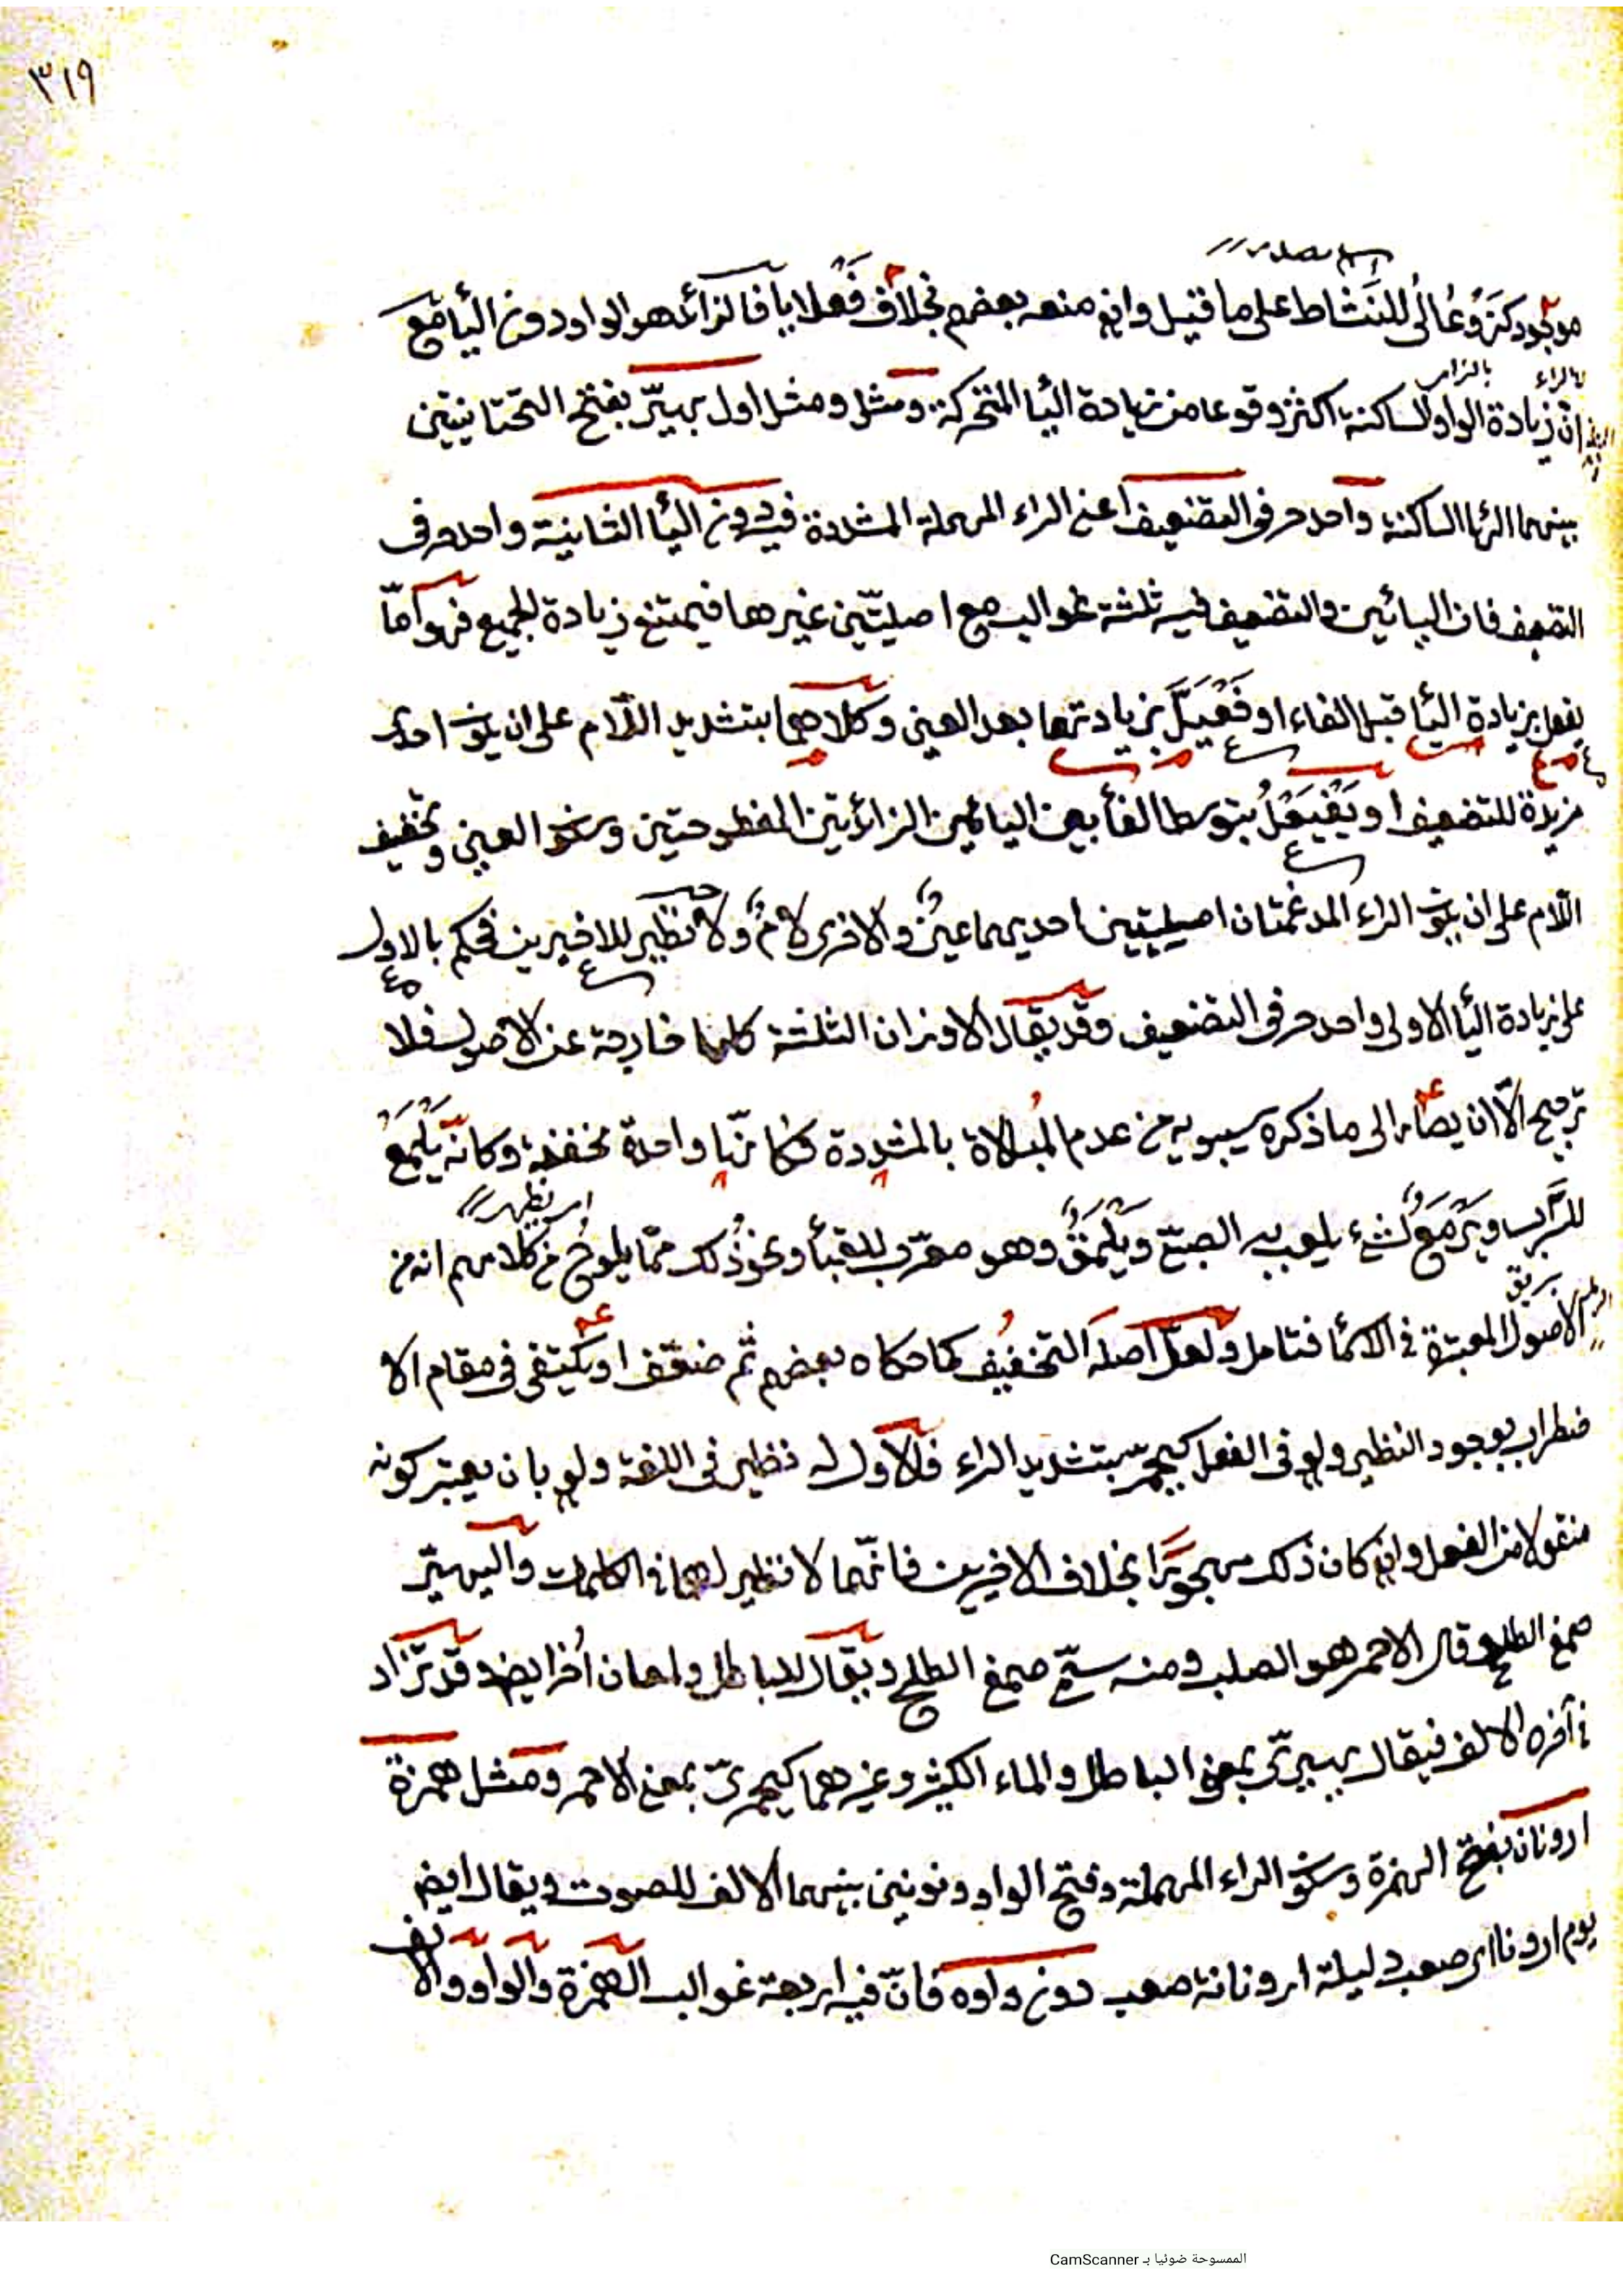 ٣١٩
موجود كنزوعالى للنشاط على ما قيل وان منعه بعضهم بخلاف فعلايا فالزائد هو الواو دون اليا مع
بالراء بالزاى
ان زيادة الواو الساكنة اكثر وقوعا من زيادة اليا المتحركة ومثل ومثل اول يهيرّ بفتح التحتانيتين
بينهما الها الساكنة واحد حرفى التضعيف اعنى الراء المهملة المشددة فيه دون اليا الثانية واحد حرفى
التضعيف فان اليائين والتضعيف فيه ثلثة غوالب مع اصليّتين غيرها فيمتنع زيادة الجميع فهو امّا
يفعل بزيادة اليا قبل الفاء او فَعْيَلّ بزيادتها بعد العين وكلاهما بتشديد اللّام على ان يكون احدى
مزيدة للتضعيف او يَفْيَعَلُ بتوسط الفا بين اليائين الزائدتين المفتوحتين وسكون العين وتخفيف
اللّام على ان يكون الراء المدغمتان اصليتين احديهما عينٌ والاخرى لامٌ ولا نظير للاخيرين فحكم بالاول
على زيادة اليا الاولى واحد حرفى التضعيف وقد يقال الاوزان الثلثة كلها خارجة عن الاصول فلا
ترجيح الّا ان يصار الى ما ذكره سيبويه من عدم المبالاة بالمشددة فكانّها واحدة مخففة وكانّه يَلْمَعُ
اى يظهر
للسَّراب ويَرْمَعٌ لشىء يلعب به الصبىّ ويَلْمَقٌ وهو معرّب للقبا ونحو ذلك ممّا يلوحُ من كلامهم انه من
الاصول المعتبرة فى الاسما فتامل ولعلّ اصله التخفيف كما حكاه بعضهم ثم ضعّف او يكتفى فى مقام الا
ضطراب بوجود النظير ولو فى الفعل كيحمرّ بتشديد الراء فالاول له نظير فى اللغة ولو بان يعتبر كونه
منقولا من الفعل وان كان ذلك مهجورًا بخلاف الاخيرين فانّهما لا نظير لهما فى الكلمات واليهيرّ
صمغ الطلح وقال الاحمر هو الصلب ومنه سمّى صمغ الطلح ويقال للباطل ولمعان اُخر ايض وقد تزاد
فى آخره الالف فيقال يهيرّى بمعنى الباطل والماء الكثير وغيرهما كيحمرىّ بمعنى الاحمر ومثل همزة
ارونان بفتح الهمزة وسكون الراء المهملة وفتح الواو ونونين بينهما الالف للصوت ويقال ايض
يوم ارونان اى صعب وليلة ارونانة صعب دون واوه فانّ فيه اربعة غوالب الهمزة والواو والالف
الممسوحة ضوئيا بـ CamScanner